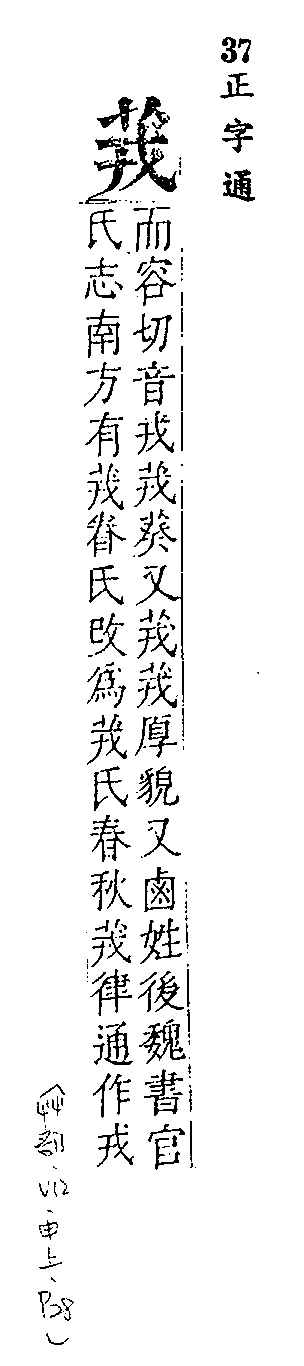 37正字通
茙
而容切音戎茙葵又茙茙厚貌又鹵姓後魏書官
氏志南方有茙眷氏改為茙氏春秋茙律通作戎
(艸部·V12·申上·P38)